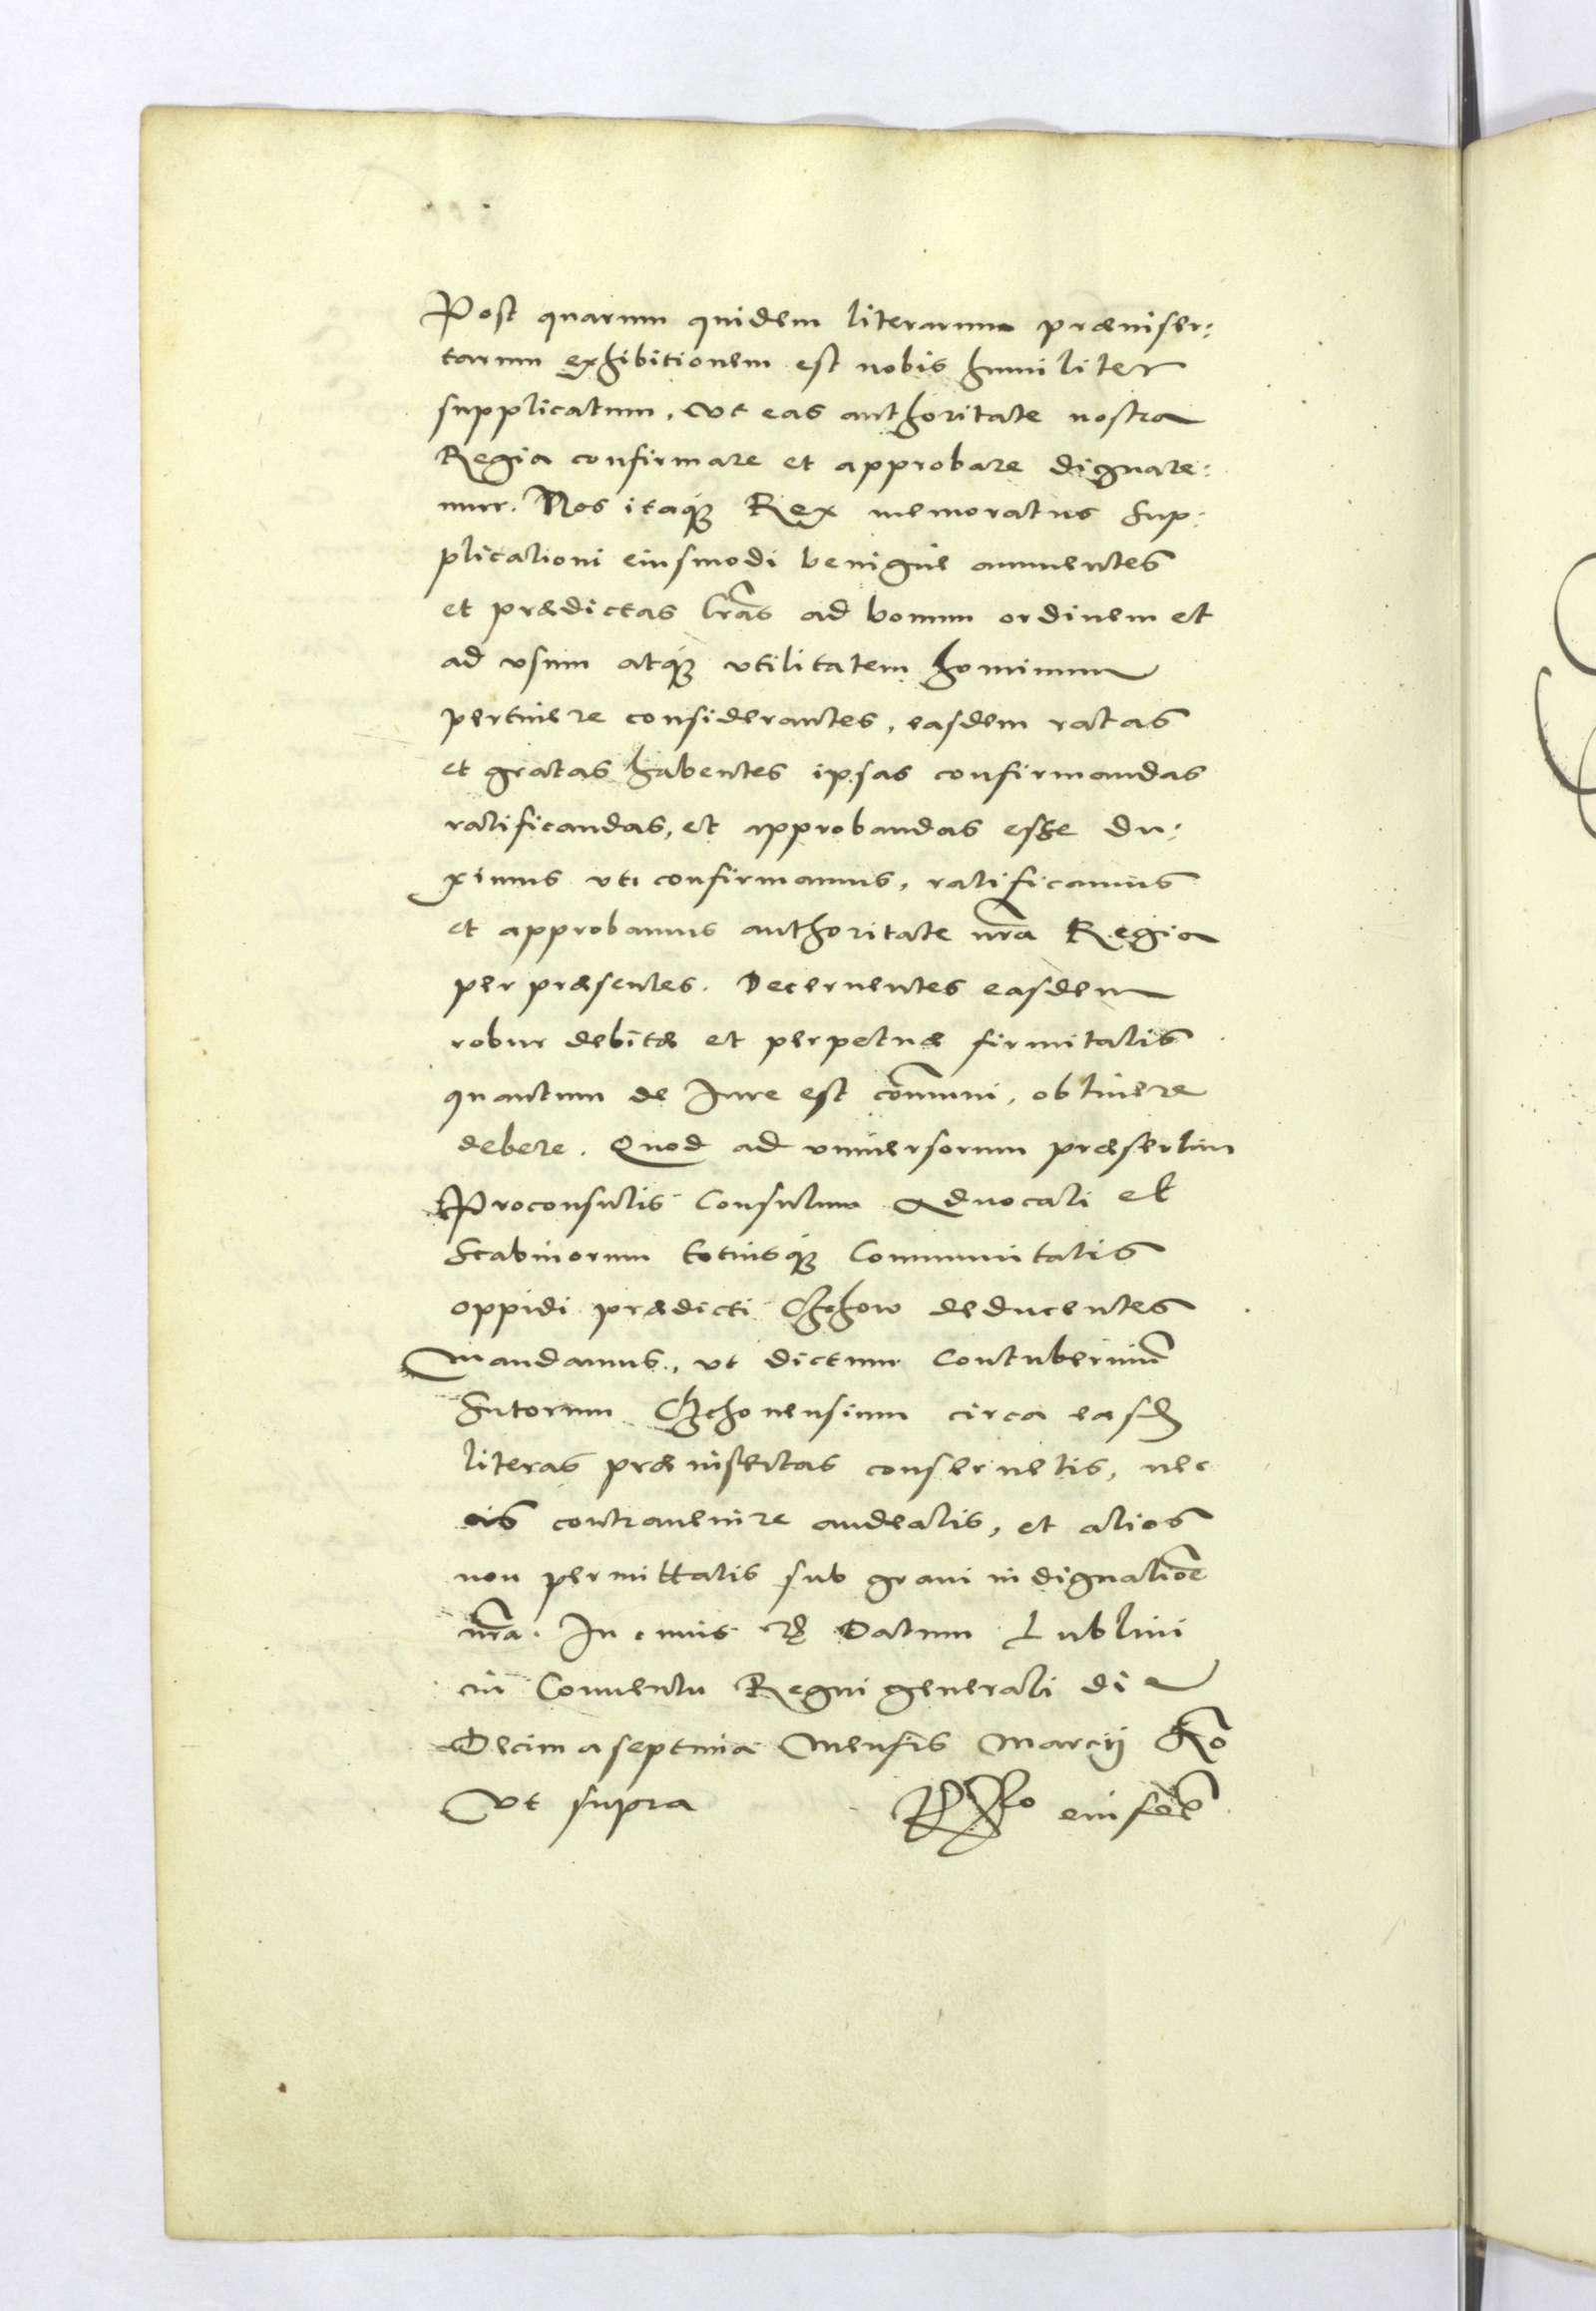 Post quarum quidem literarum præinser:
tarum exhibitionem est nobis humiliter
supplicatum, Vt eas authoritate nostra
Regia confirmare et approbare dignare:
mur. Nos itaq̃ Rex memoratus Sup:
plicationi eiusmodi benigne annuentes
et prædictas l̃ras ad bonum ordinem et
ad vsum atq̃ vtilitatem hominum
pertinere considerantes, easdem ratas
et gratas habentes ipsas confirmandas
ratificandas, et approbandas esse du:
ximus uti confirmamus, ratificamus
et approbamus authoritate n̄ra Regia
per præsentes. Decernentes easdem
robur debitæ et perpetuæ firmitatis
quantum de Iure est cōmuni, obtinere
debere. Quod ad vniuersorum præsertim
Proconsulis Consulum Aduocati et
Scabinorum totiusq̃ Communitatis
oppidi prædicti deducentes
Mandamus, vt dictum Contuberniũ
Sutorum circa easd̃
literas præinsertas conseruetis, nec
eis contrauenire audeatis, et alios
non permittatis sub graui indignatiõe
n̄ra. In cuius rẽ Datum Lublini
in Conuentu Regni generali die
Decima septima Mensis Marcij
Vt supra